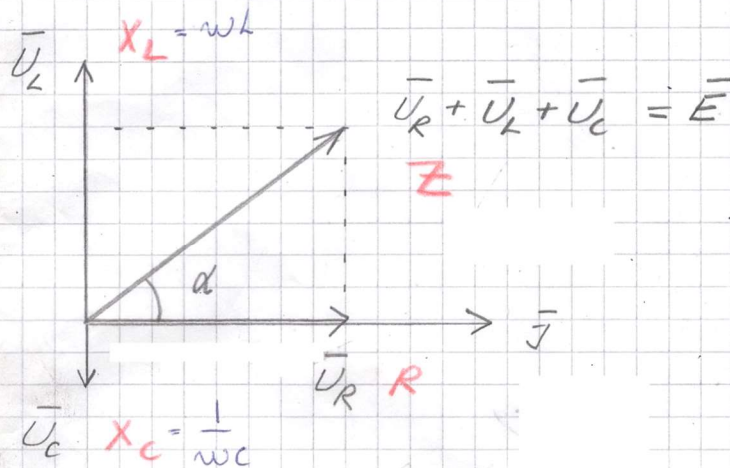 X_L = wL
U̅_L
U̅_R + U̅_L + U̅_C = E̅
Z
α
J̅
U̅_R R
U̅_C X_C = 1/wC